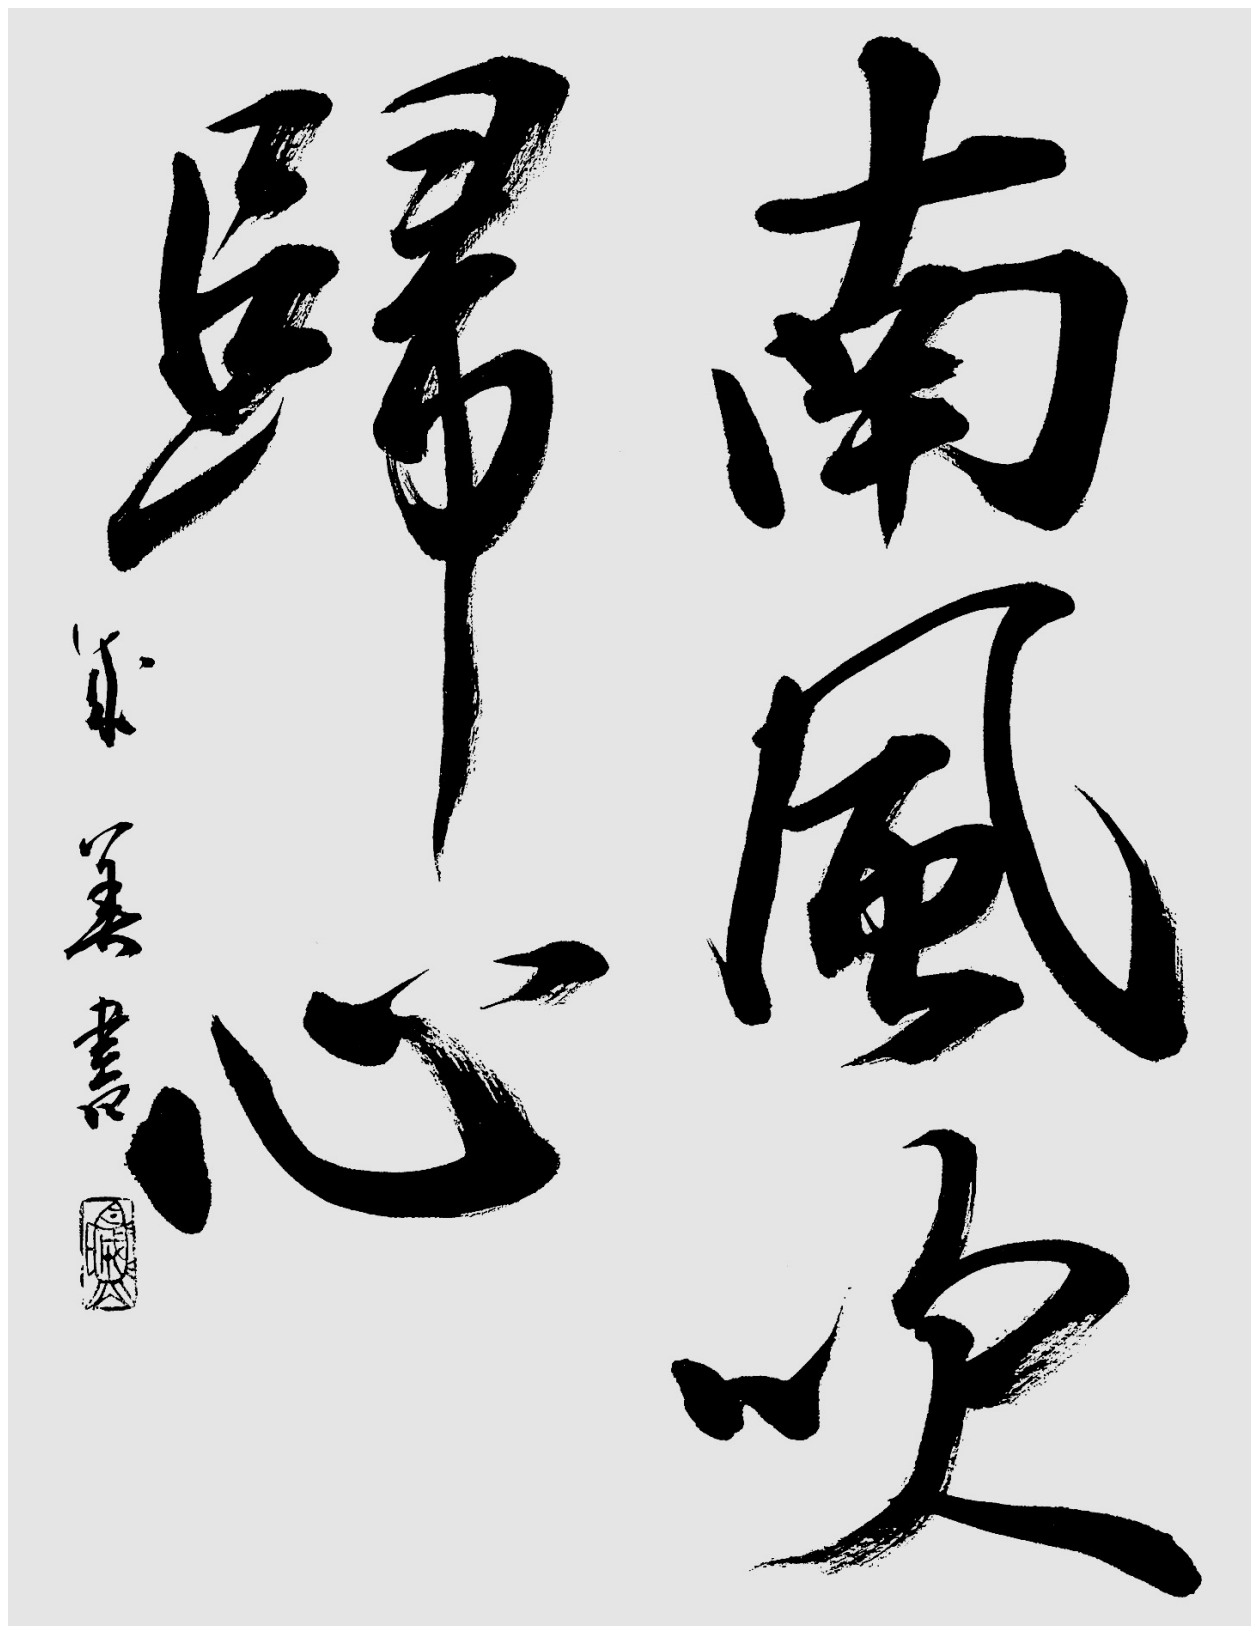 南風吹
歸心
美書